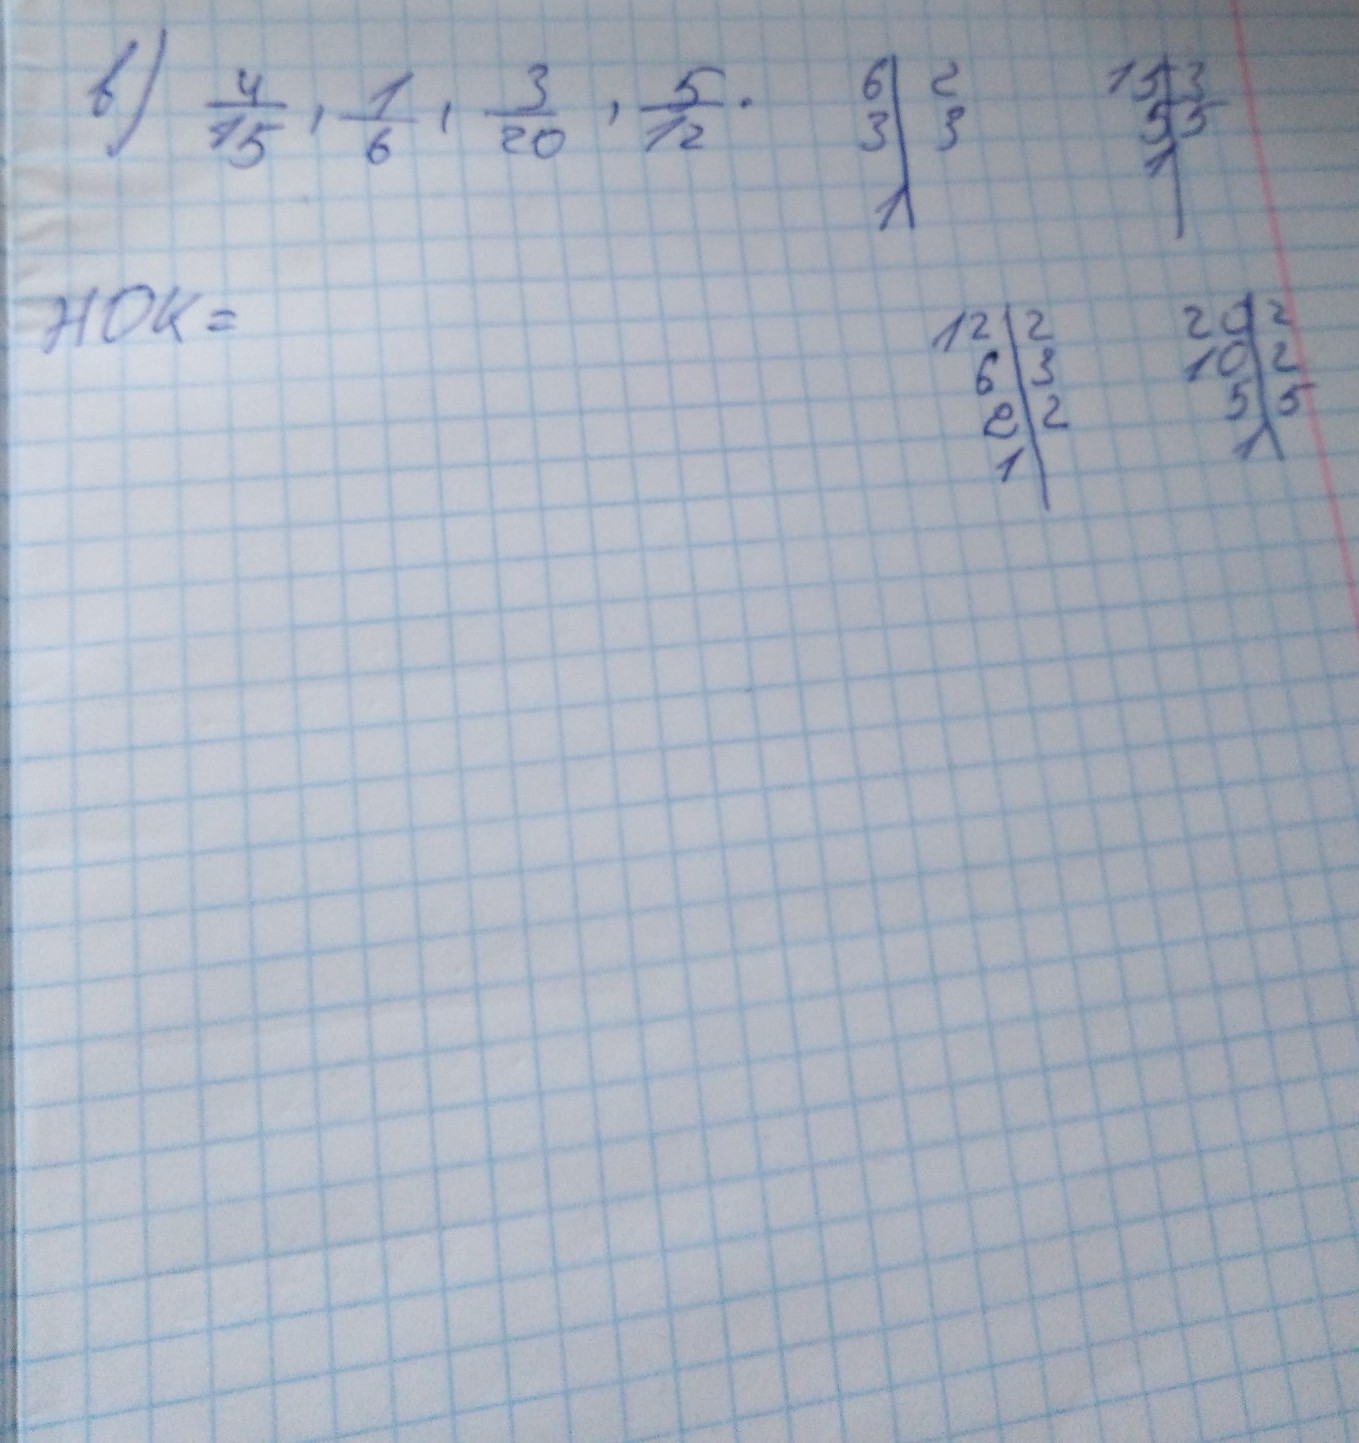 в) 4/15, 1/6, 3/20, 5/12.
6|2
3|3
1|
15|3
5|5
1|
НОК=
12|2
6|3
2|2
1|
20|2
10|2
5|5
1|